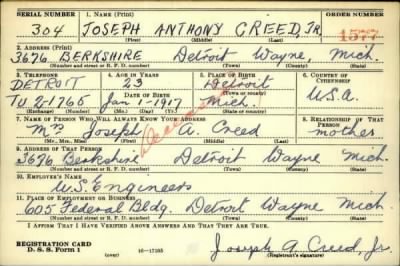 SERIAL NUMBER 1. NAME (Print) ORDER NUMBER
304 JOSEPH ANTHONY CREED, JR. 1577
(First) (Middle) (Last)
2. ADDRESS (Print)
3676 BERKSHIRE Detroit Wayne, Mich.
(Number and street or R. F. D. number) (Town) (County) (State)
3. TELEPHONE 4. AGE IN YEARS 5. PLACE OF BIRTH 6. COUNTRY OF CITIZENSHIP
DETROIT 23 Detroit
DATE OF BIRTH (Town or county)
TU 2-1765 Jan-1-1917 Mich. U.S.A.
(Exchange) (No.) (Mo.) (Day) (Yr.) (State or country)
7. NAME OF PERSON WHO WILL ALWAYS KNOW YOUR ADDRESS 8. RELATIONSHIP OF THAT PERSON
Mrs Joseph A. Creed mother
(Mr., Mrs., Miss) (First) (Middle) (Last)
9. ADDRESS OF THAT PERSON
3676 Berkshire Detroit Wayne Mich.
(Number and street or R. F. D. number) (Town) (County) (State)
10. EMPLOYER'S NAME
U.S. Engineers
11. PLACE OF EMPLOYMENT OR BUSINESS
605 Federal Bldg. Detroit Wayne Mich.
(Number and street or R. F. D. number) (Town) (County) (State)
I AFFIRM THAT I HAVE VERIFIED ABOVE ANSWERS AND THAT THEY ARE TRUE.
REGISTRATION CARD
D. S. S. Form 1 (over) 16-17105 Joseph A. Creed, Jr.